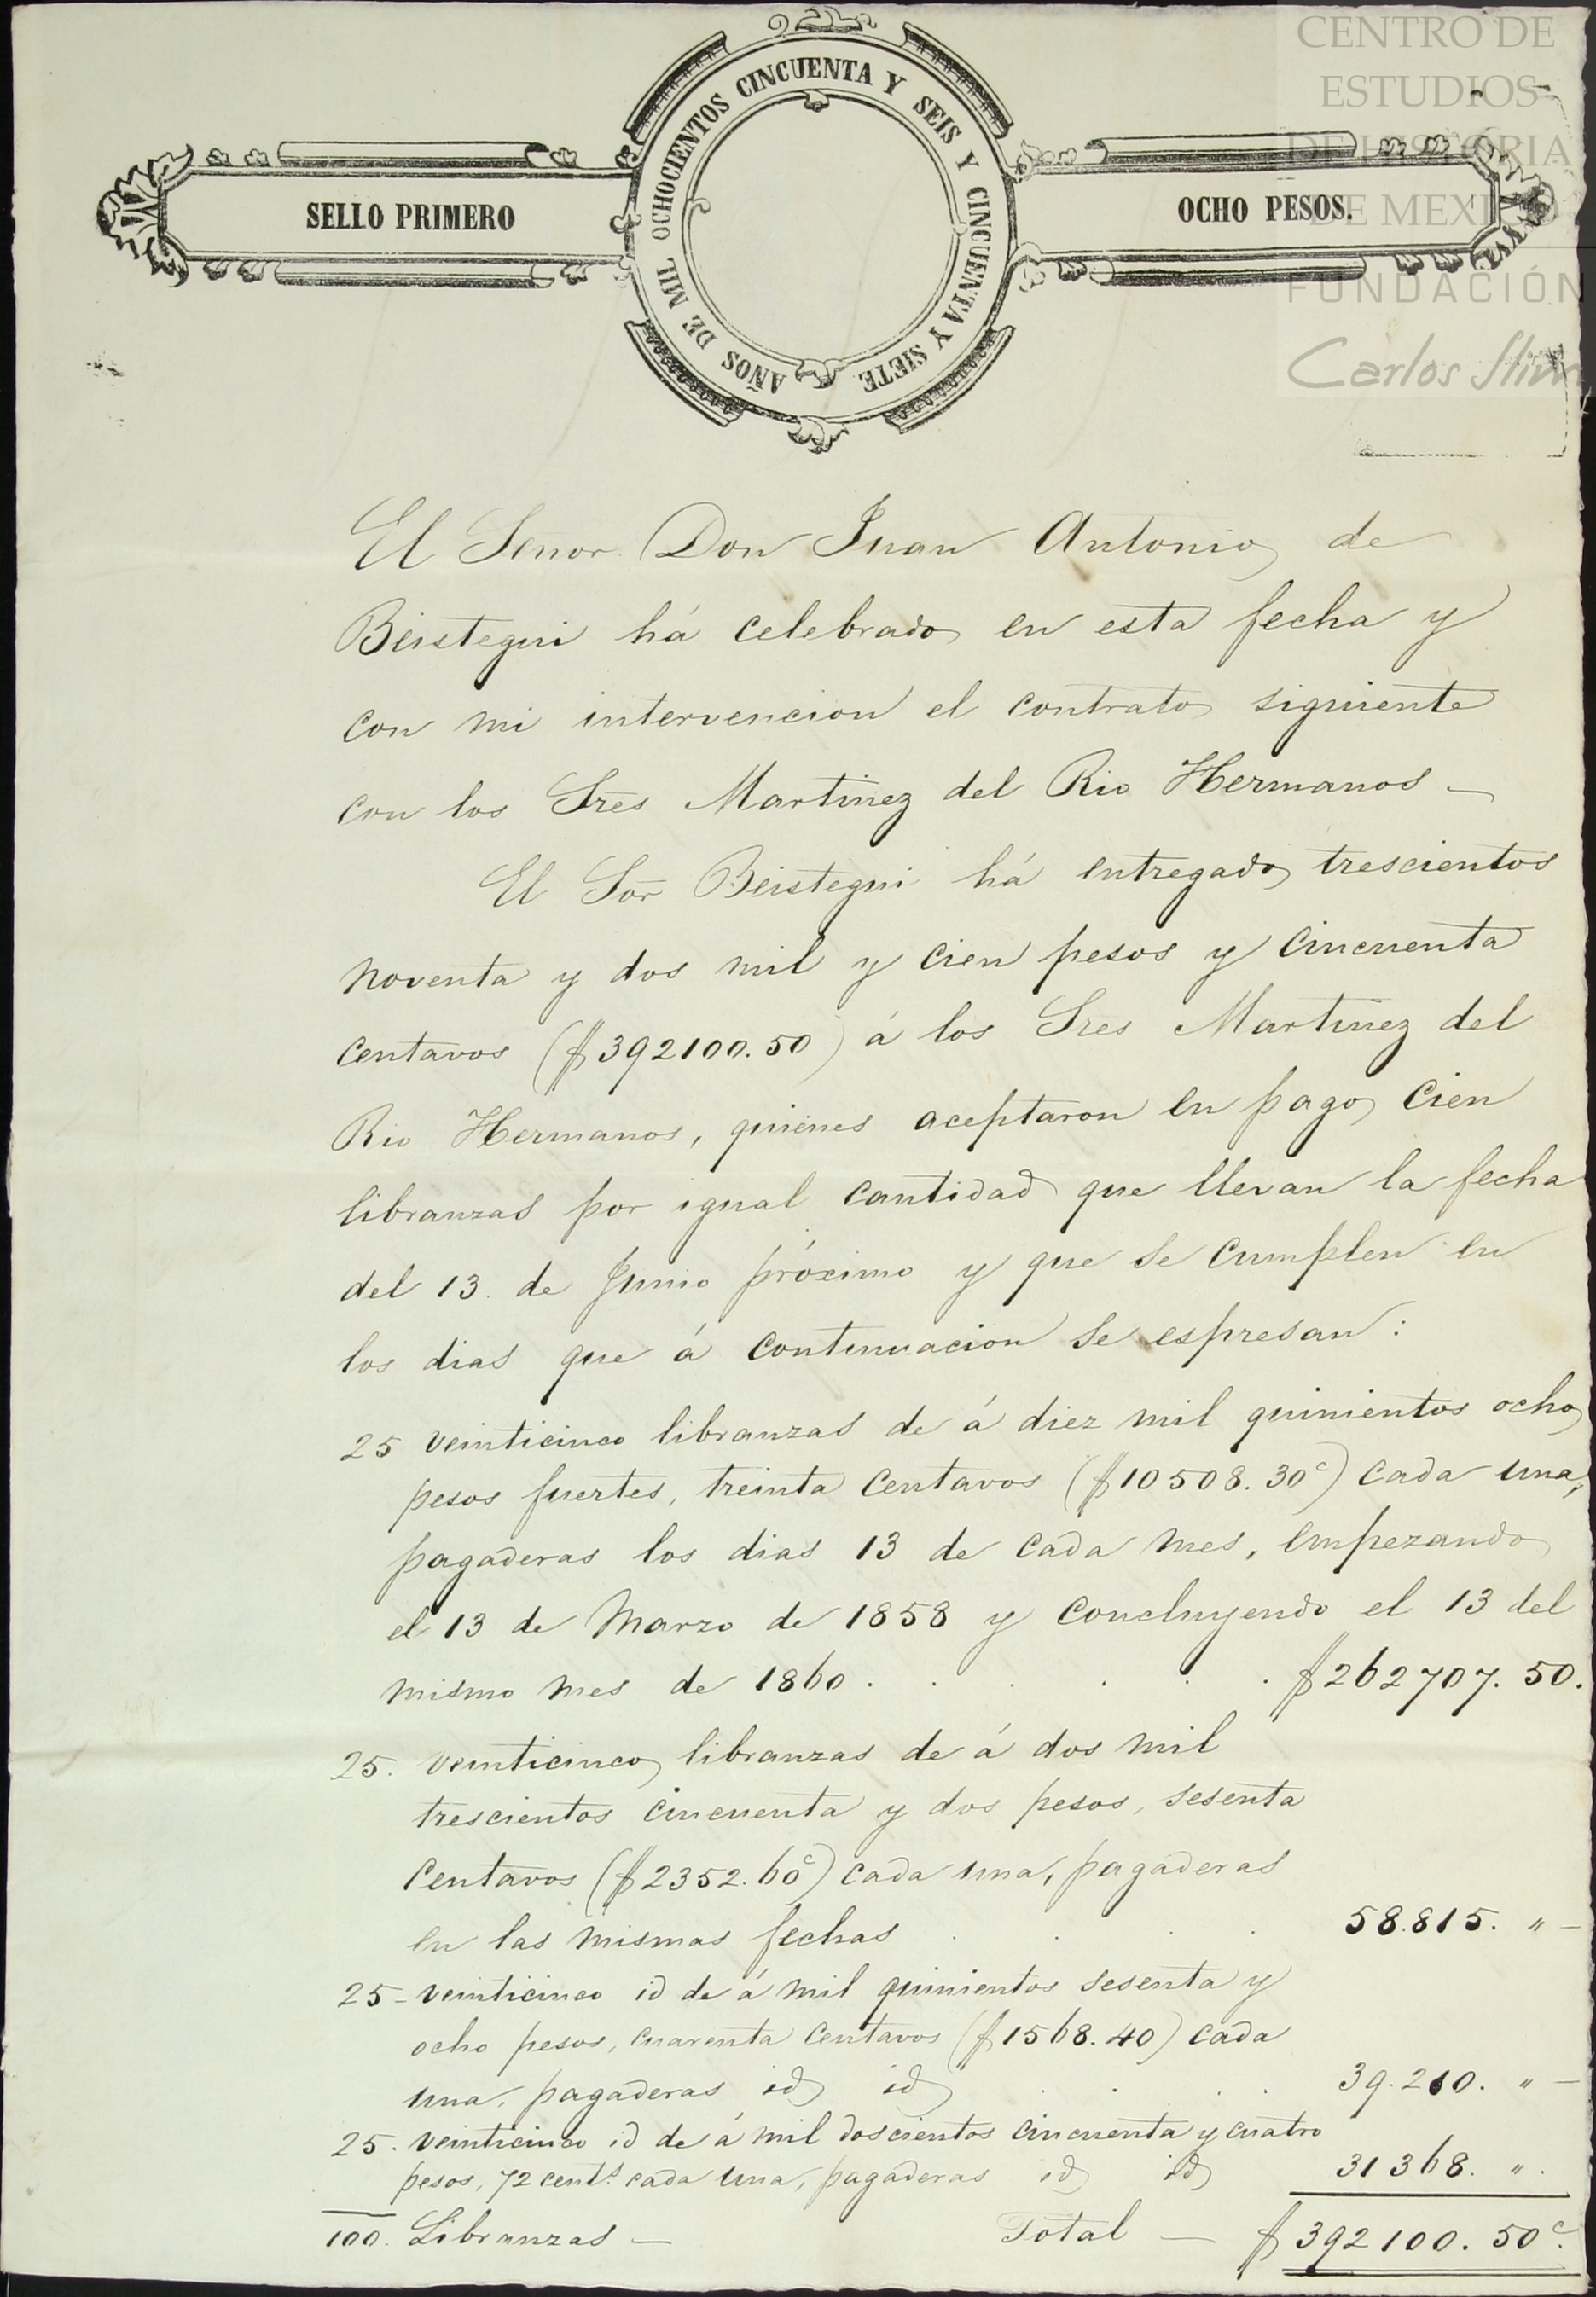 CENTRO DE
ESTUDIOS
DE HISTORIA
DE MEXICO
FUNDACIÓN
Carlos Slim
SELLO PRIMERO
AÑOS DE MIL OCHOCIENTOS CINCUENTA Y SEIS Y CINCUENTA Y SIETE
OCHO PESOS.
El Senor Don Juan Antonio de
Beistegui há celebrado en esta fecha y
con mi intervencion el contrato siguiente
con los Sres Martinez del Rio Hermanos —
El Sor Beistegui há entregado trescientos
noventa y dos mil y cien pesos y cincuenta
centavos ($392100.50) á los Sres Martinez del
Rio Hermanos, quienes aceptaron en pago cien
libranzas por igual cantidad que llevan la fecha
del 13 de Junio próximo y que se cumplen en
los dias que á continuacion se espresan:
25 veinticinco libranzas de á diez mil quinientos ocho
pesos fuertes, treinta centavos ($10508.30c) cada una,
pagaderas los dias 13 de cada mes, empezando
el 13 de Marzo de 1858 y concluyendo el 13 del
mismo mes de 1860 . . . . . . $262707.50.
25. veinticinco libranzas de á dos mil
trescientos cincuenta y dos pesos, sesenta
centavos ($2352.60c) cada una, pagaderas
en las mismas fechas . . . . 58.815. " —
25 - veinticinco id de á mil quinientos sesenta y
ocho pesos, cuarenta centavos ($1568.40) cada
una, pagaderas id id . . . 39.210. " —
25. veinticinco id de á mil doscientos cincuenta y cuatro
pesos, 72 cents. cada una, pagaderas id id 31368. " .
100. Libranzas — Total — $392100.50c.